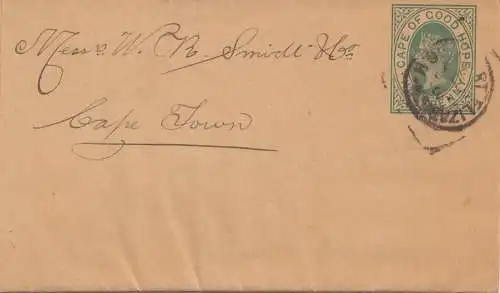 Mess.s W. R. Smidt & Co
Cape Town
CAPE OF GOOD HOPE
PENNY